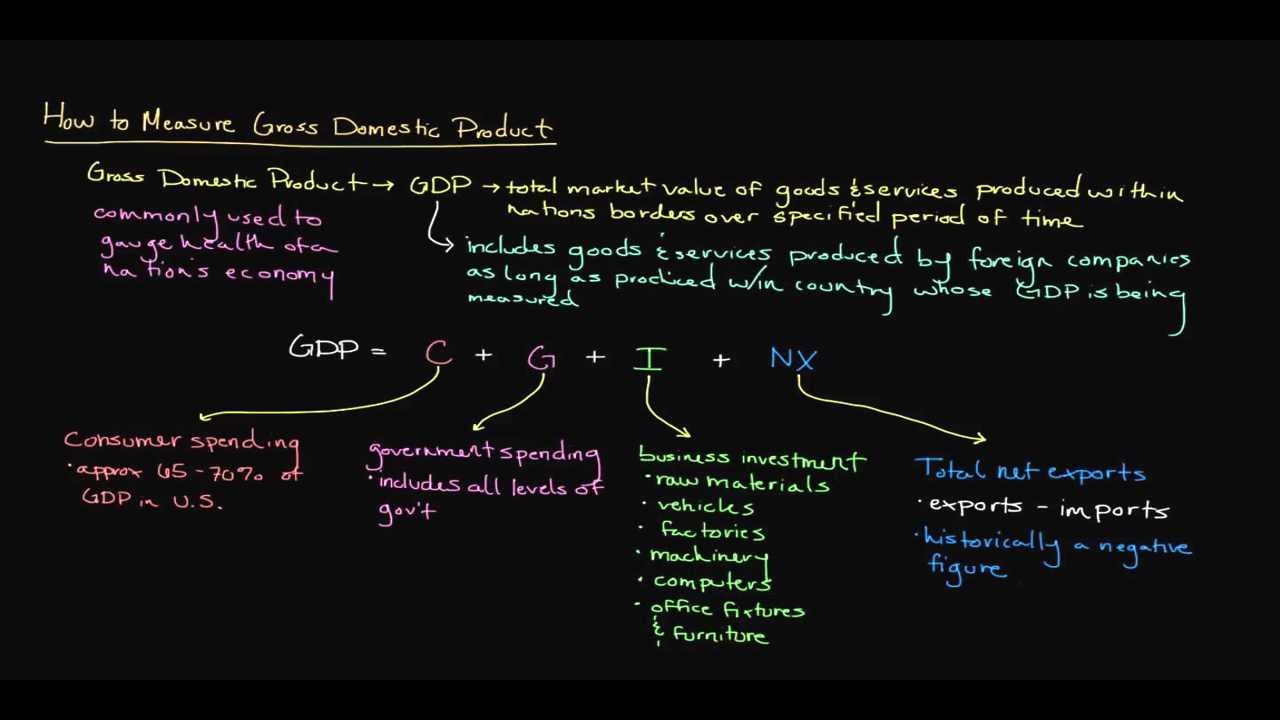 How to Measure Gross Domestic Product
Gross Domestic Product → GDP → total market value of goods & services produced within
nations borders over specified period of time
commonly used to
gauge health of a
nation's economy
includes goods & services produced by foreign companies
as long as produced w/in country whose GDP is being
measured
GDP = C + G + I + NX
Consumer spending
• approx 65-70% of
GDP in U.S.
government spending
• includes all levels of
gov't
business investment
• raw materials
• vehicles
• factories
• machinery
• computers
• office fixtures
& furniture
Total net exports
• exports - imports
• historically a negative
figure